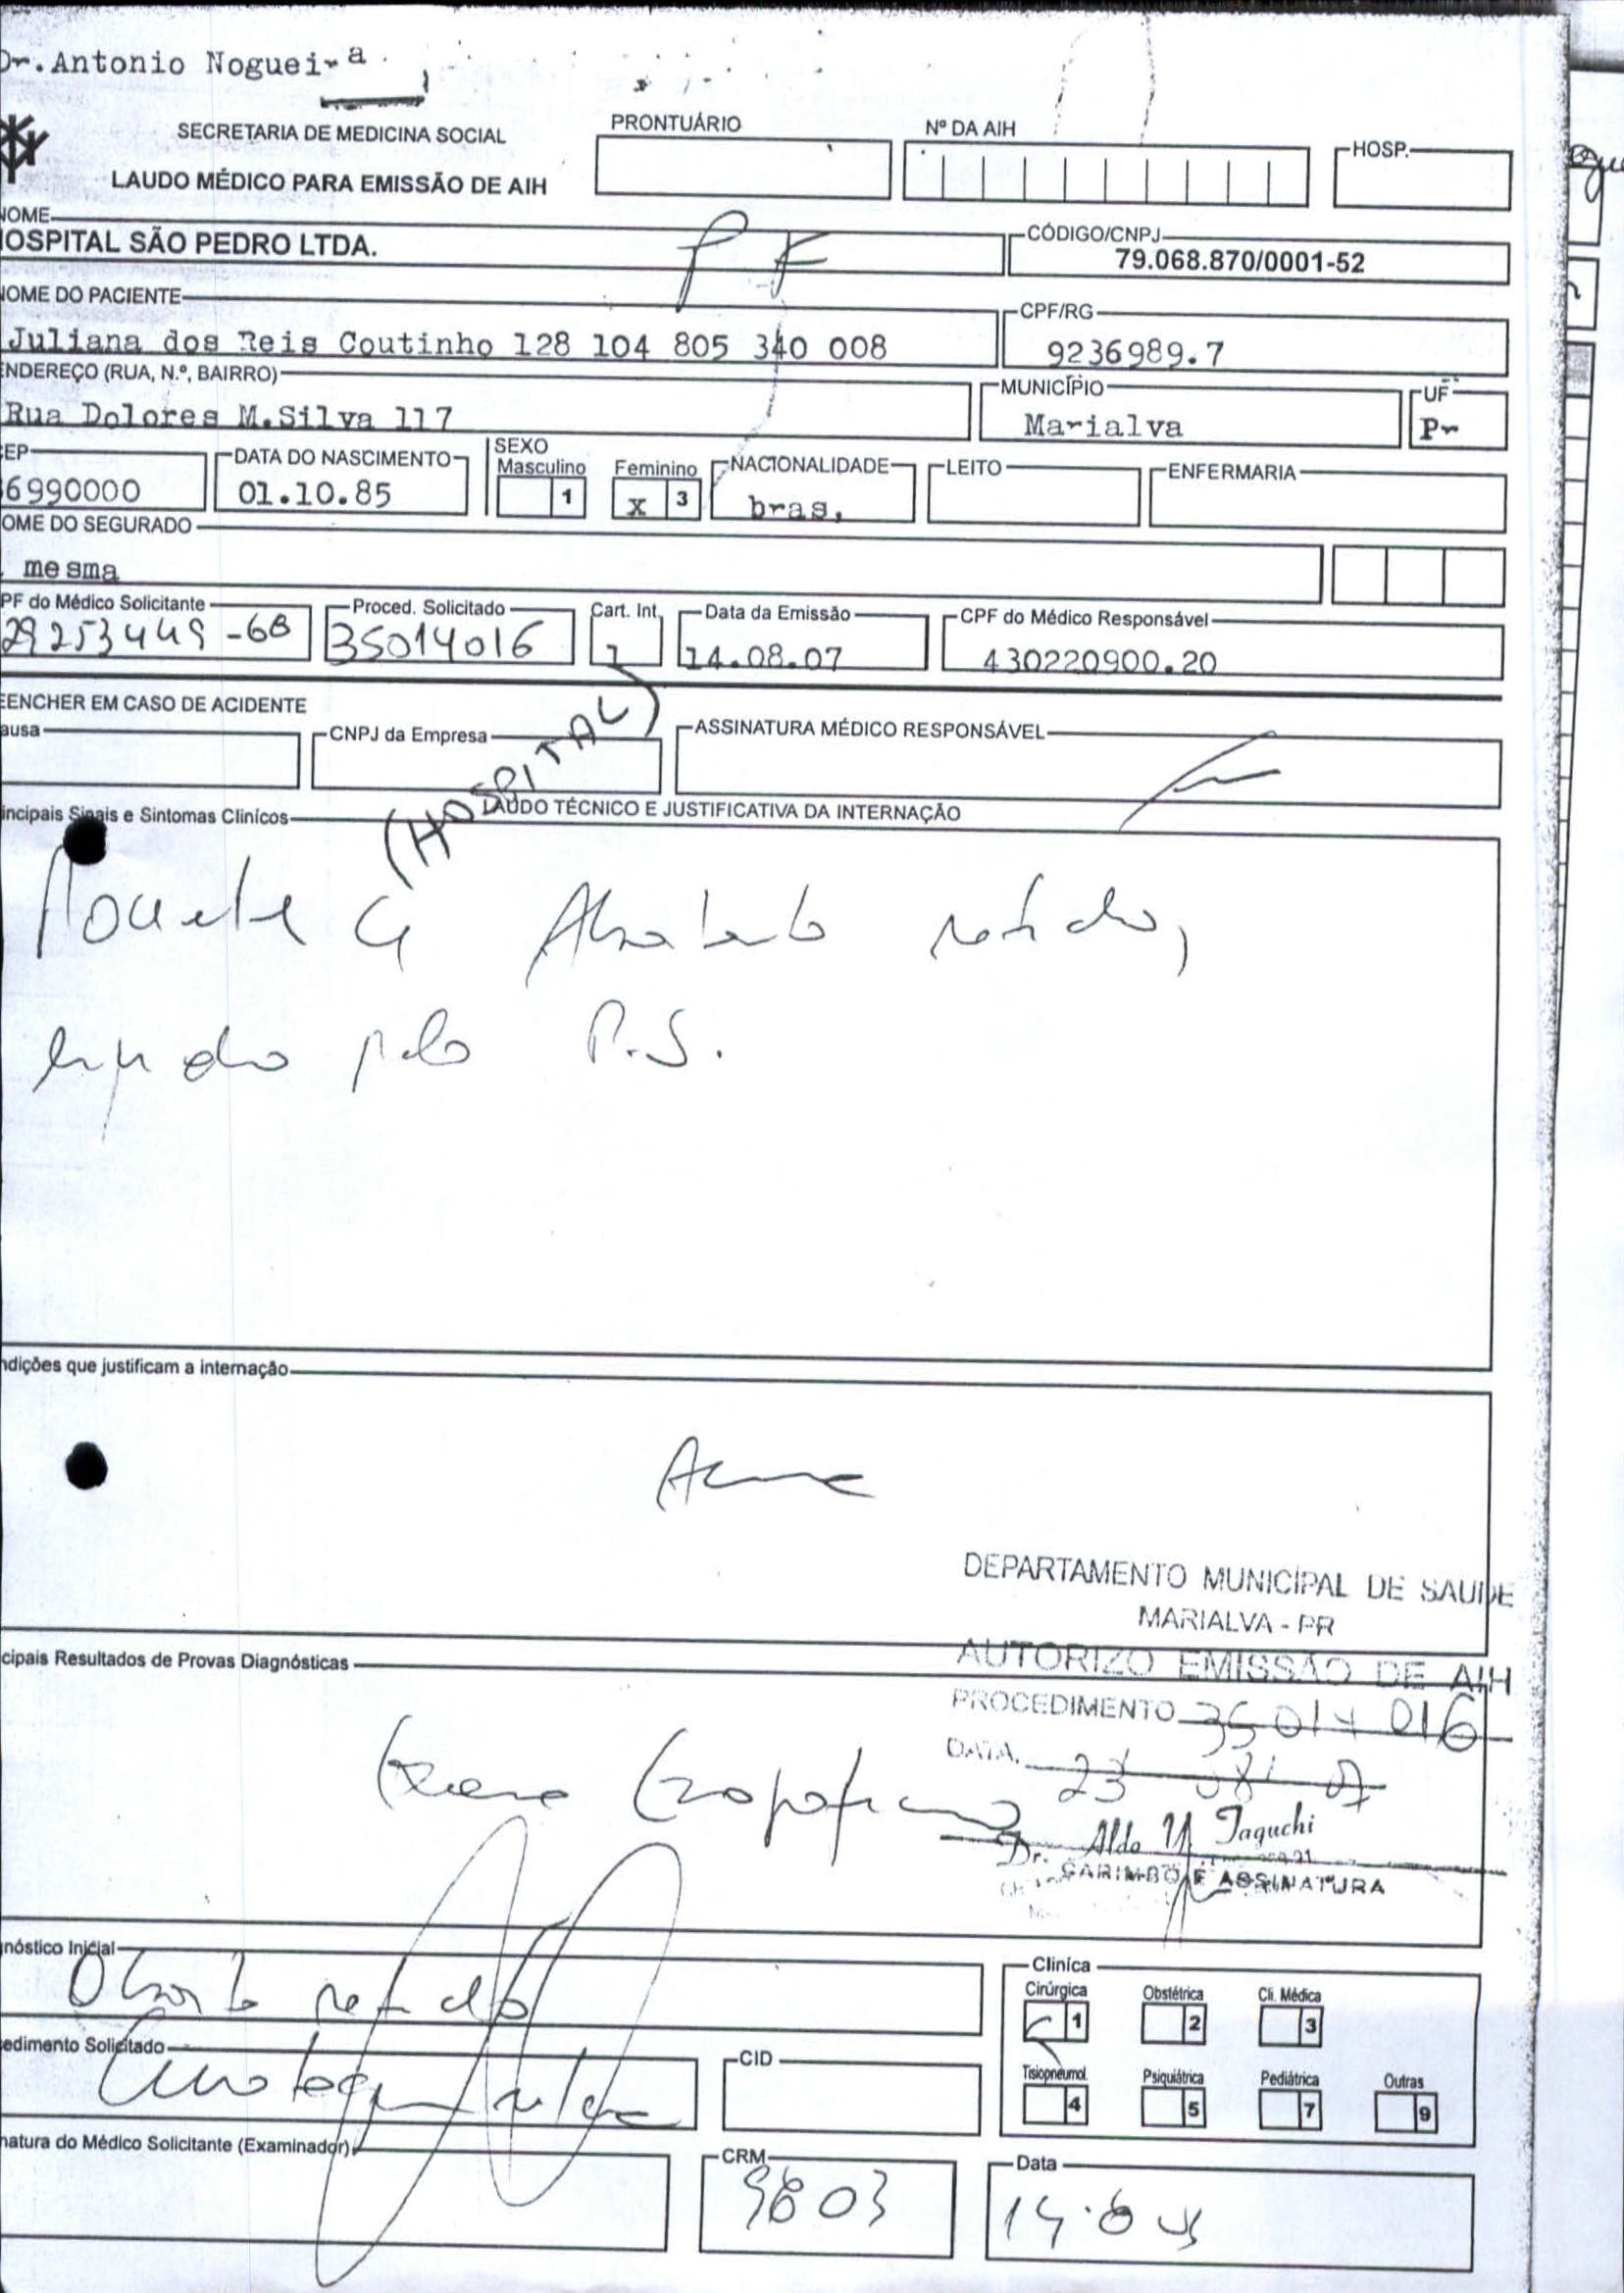 Dr. Antonio Nogueira
SECRETARIA DE MEDICINA SOCIAL
LAUDO MÉDICO PARA EMISSÃO DE AIH
PRONTUÁRIO
Nº DA AIH
HOSP.
NOME
HOSPITAL SÃO PEDRO LTDA.
CÓDIGO/CNPJ
79.068.870/0001-52
NOME DO PACIENTE
Juliana dos Reis Coutinho 128 104 805 340 008
CPF/RG
9236989.7
ENDEREÇO (RUA, N.º, BAIRRO)
Rua Dolores M.Silva 117
MUNICÍPIO
Marialva
UF
Pr
CEP
86990000
DATA DO NASCIMENTO
01.10.85
SEXO
Masculino 1
Feminino x 3
NACIONALIDADE
bras.
LEITO
ENFERMARIA
NOME DO SEGURADO
mesma
CPF do Médico Solicitante
29253449-68
Proced. Solicitado
35014016
Cart. Int.
1
Data da Emissão
14.08.07
CPF do Médico Responsável
430220900.20
EENCHER EM CASO DE ACIDENTE
ausa
CNPJ da Empresa
(HOSPITAL)
ASSINATURA MÉDICO RESPONSÁVEL
LAUDO TÉCNICO E JUSTIFICATIVA DA INTERNAÇÃO
incipais Sinais e Sintomas Clínicos
retido,
pelo P.S.
ndições que justificam a internação
DEPARTAMENTO MUNICIPAL DE SAUDE
MARIALVA - PR
AUTORIZO EMISSÃO DE AIH
cipais Resultados de Provas Diagnósticas
PROCEDIMENTO 35014016
DATA. 23 08 07
Dr. Aldo Y. Taguchi
CARIMBO E ASSINATURA
nóstico Inicial
retido
edimento Solicitado
CID
Clínica
Cirúrgica 1
Obstétrica 2
Cli. Médica 3
Tisiopneumol. 4
Psiquiátrica 5
Pediátrica 7
Outras 9
natura do Médico Solicitante (Examinador)
CRM
9803
Data